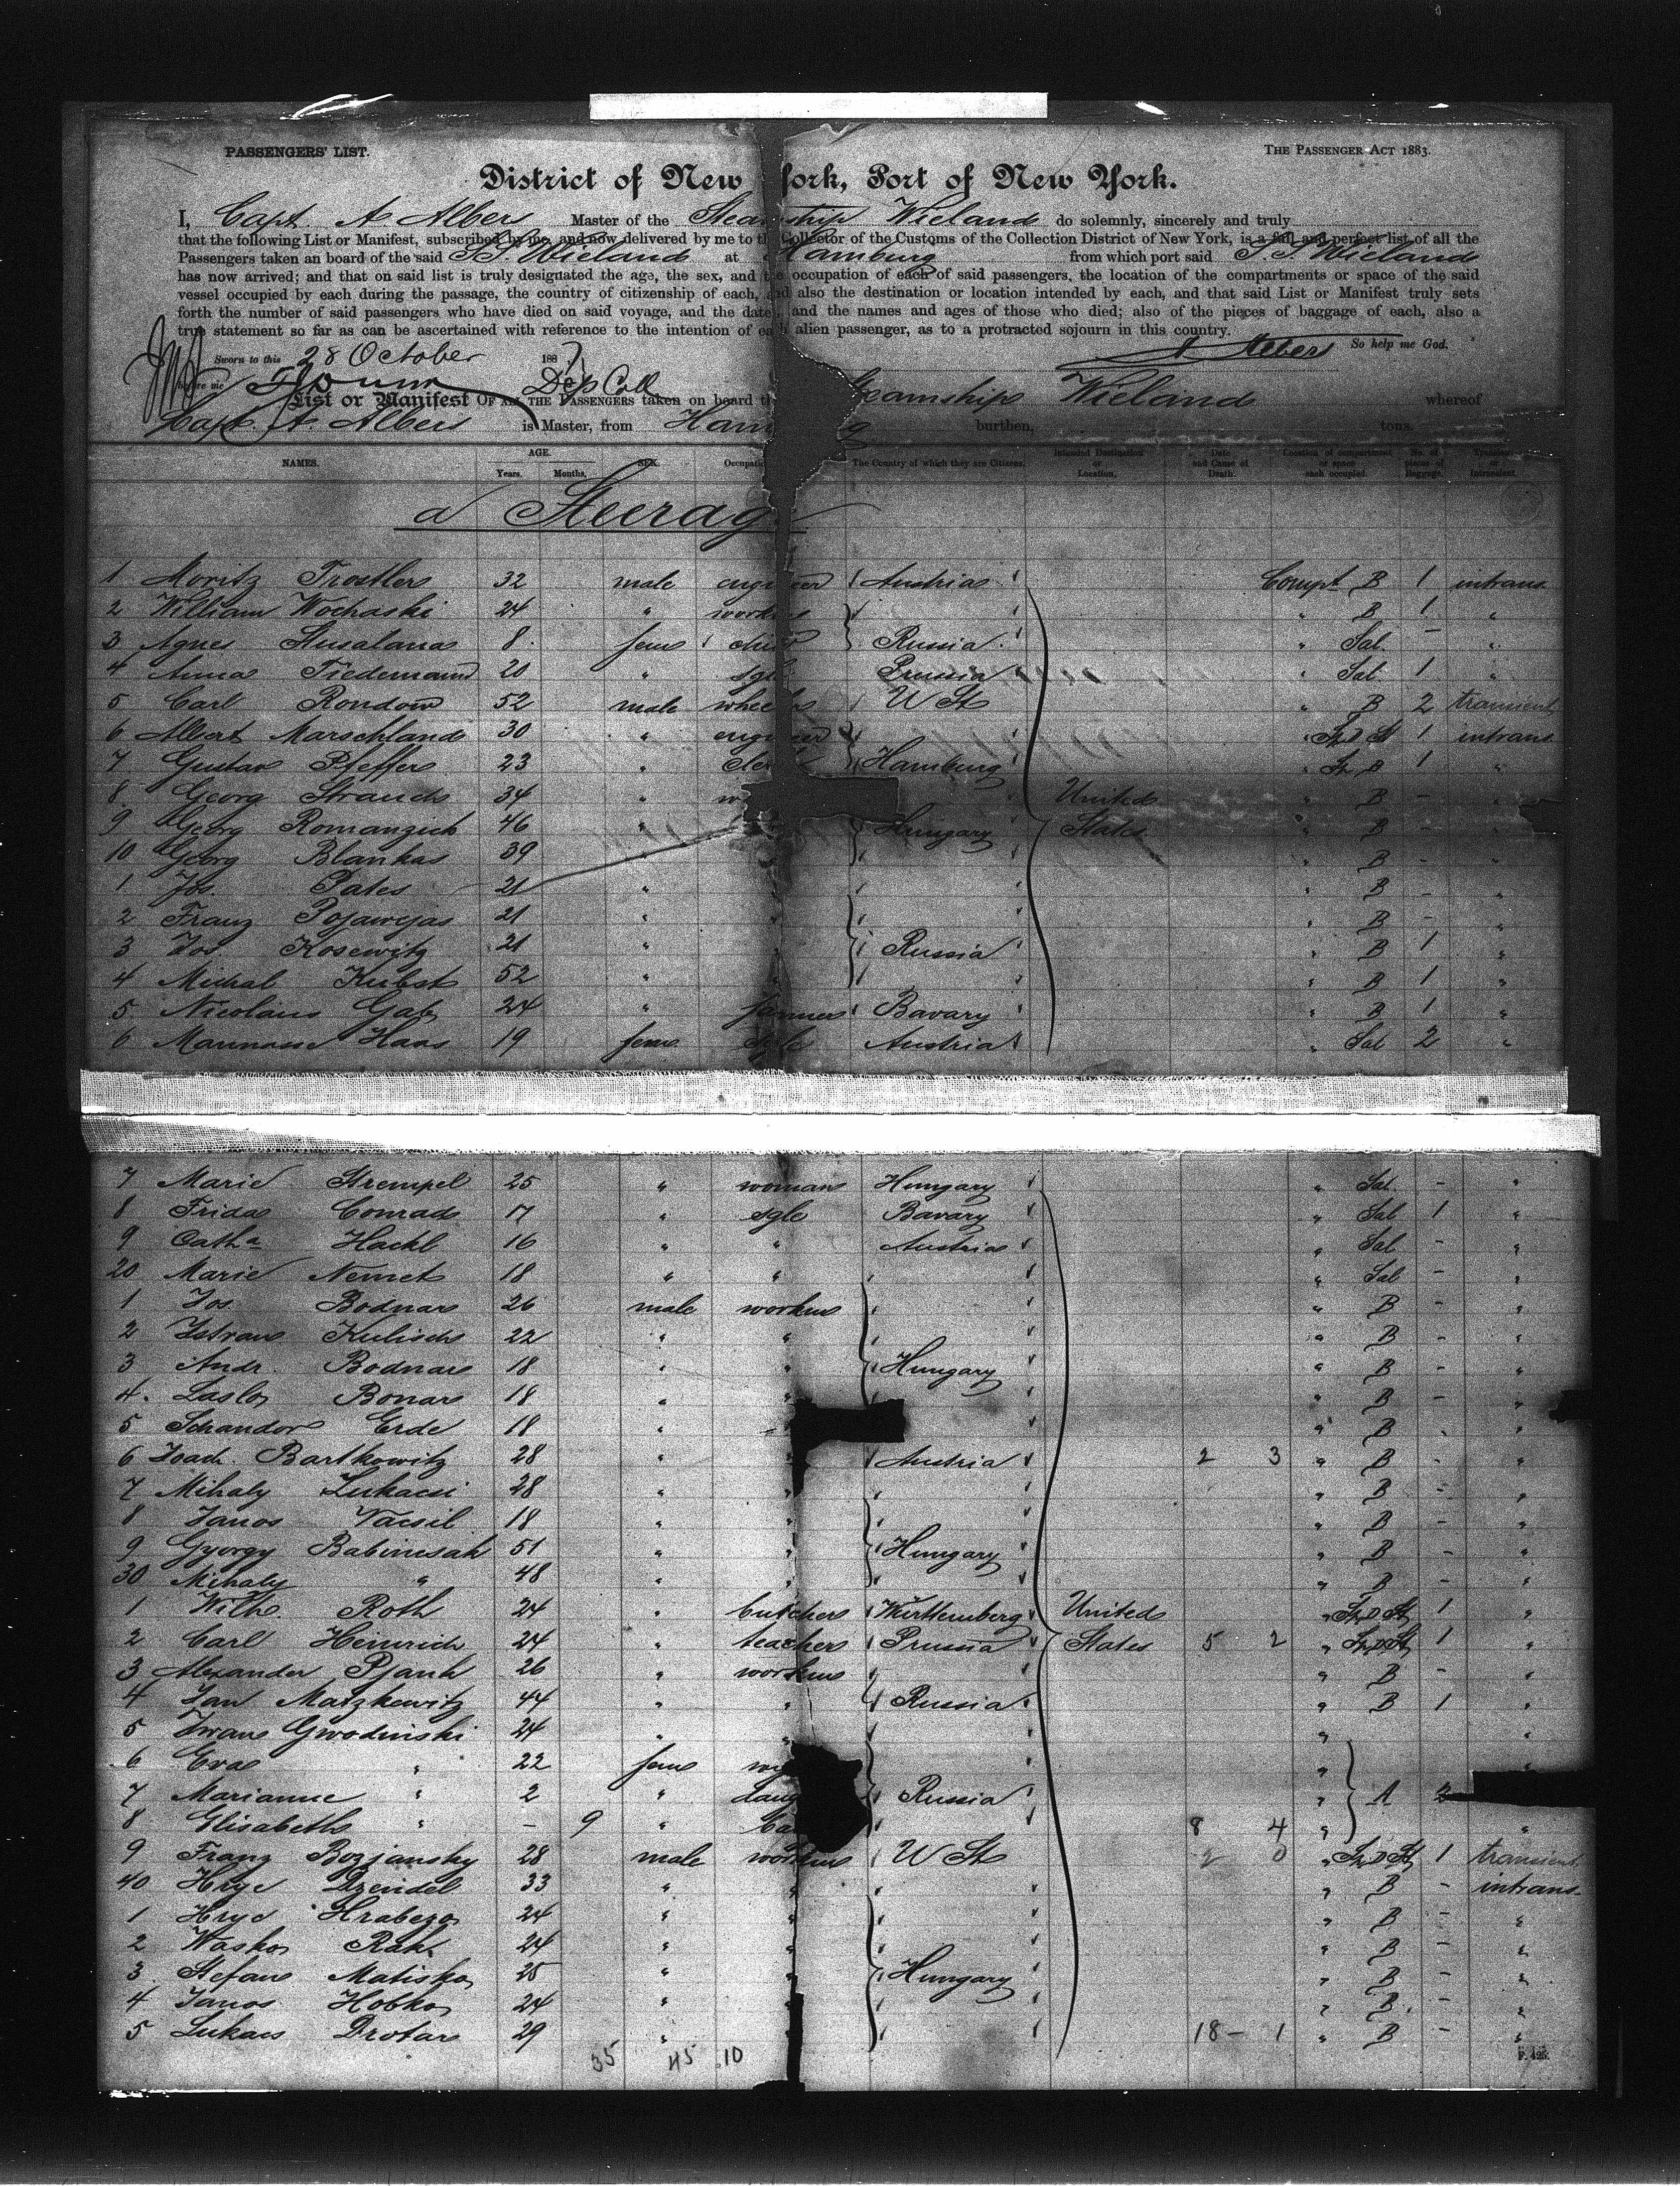 PASSENGERS' LIST. THE PASSENGER ACT 1883.
District of New York, Port of New York.
I, Capt A. Albers Master of the Steamship Wieland do solemnly, sincerely and truly
that the following List or Manifest, subscribed by me, and now delivered by me to the Collector of the Customs of the Collection District of New York, is a full and perfect list of all the
Passengers taken an board of the said S.S. Wieland at Hamburg from which port said S.S. Wieland
has now arrived; and that on said list is truly designated the age, the sex, and the occupation of each of said passengers, the location of the compartments or space of the said
vessel occupied by each during the passage, the country of citizenship of each, and also the destination or location intended by each, and that said List or Manifest truly sets
forth the number of said passengers who have died on said voyage, and the dates, and the names and ages of those who died; also of the pieces of baggage of each, also a
true statement so far as can be ascertained with reference to the intention of each alien passenger, as to a protracted sojourn in this country.
Sworn to this 28 October 1887 A Albers So help me God.
before me Dep Coll
List or Manifest OF ALL THE PASSENGERS taken on board the Steamship Wieland whereof
Capt. A. Albers is Master, from Hamburg burthen, tons.
NAMES. AGE. Years. Months. SEX. Occupation The Country of which they are Citizens. Intended Destination or Location. Date and Cause of Death. Location of compartment or space each occupied. No. of pieces of Baggage. Transient or Intransient.
a Steerage
1 Moritz Trostler 32 male engineer Austria Compt B 1 intrans
2 William Wochaski 24 " worker " B 1 "
3 Agnes 8 fem child Russia " Sal - "
4 Anna Tiedemann 20 " sgle Prussia " Sal 1 "
5 Carl Rondow 52 male W St " B 2 transient
6 Albert Marschland 30 " engineer " " 1 intrans
7 Gustav Pfeffer 23 " clerk Hamburg " 1 "
8 Georg Strauch 34 " United " B - "
9 Georg Romanzich 46 " Hungary States " B - "
10 Georg Blankas 39 " " B - "
1 Jos. Pates 21 " " " B - "
2 Franz Pojawejas 21 " " " B - "
3 Jos. Kosewitz 21 " Russia " B 1 "
4 Michal Kubst 52 " " " B 1 "
5 Nicolaus Gab 24 " farmer Bavary " B 1 "
6 Haas 19 fem sgle Austria " Sal 2 "
7 Marie Strempel 25 " woman Hungary " Sal - "
8 Frida Conrad 17 " sgle Bavary " Sal 1 "
9 Catha Hackl 16 " " Austria " Sal - "
20 Marie Nemet 18 " " " " Sal - "
1 Jos. Bodnar 26 male worker " " B - "
2 Istvan Kulisch 22 " " " " B - "
3 Andr. Bodnar 18 " " Hungary " B - "
4 Laslo Bonar 18 " " " " B - "
5 Schandor Erde 18 " " B - "
6 Joach. Bartkowitz 28 " " Austria 2 3 " B - "
7 Mihaly Lukacsi 28 " " " " B - "
8 Janos Vacsil 18 " " " " B - "
9 Gyorgy Babinesak 51 " " Hungary " B - "
30 Mihaly " 48 " " " " B - "
1 Wilh. Roth 24 " butcher Württemberg United " 1 "
2 Carl Heinrich 24 " teacher Prussia States 5 2 " 1 "
3 Alexander Pjank 26 " worker " " B - "
4 Jan Matzkewitz 44 " " Russia " B 1 "
5 Iwan Gwodinski 24 " " " " "
6 Eva " 22 fem " "
7 Marianne " 2 " Russia " A "
8 Elisabeth " - 9 " " 8 4 " "
9 Franz Bozjansky 28 male worker W St 2 0 " 1 transient
40 Hryc Dzeindel 33 " " " " B - intrans
1 Hryc Hrabezo 24 " " " " B - "
2 Wasko Rak 24 " " " " B - "
3 Stefan Matisko 25 " " Hungary " B - "
4 Janos Hobko 24 " " " " B - "
5 Lukacs Drotar 29 " " " 18 - 1 " B - "
35 45 10